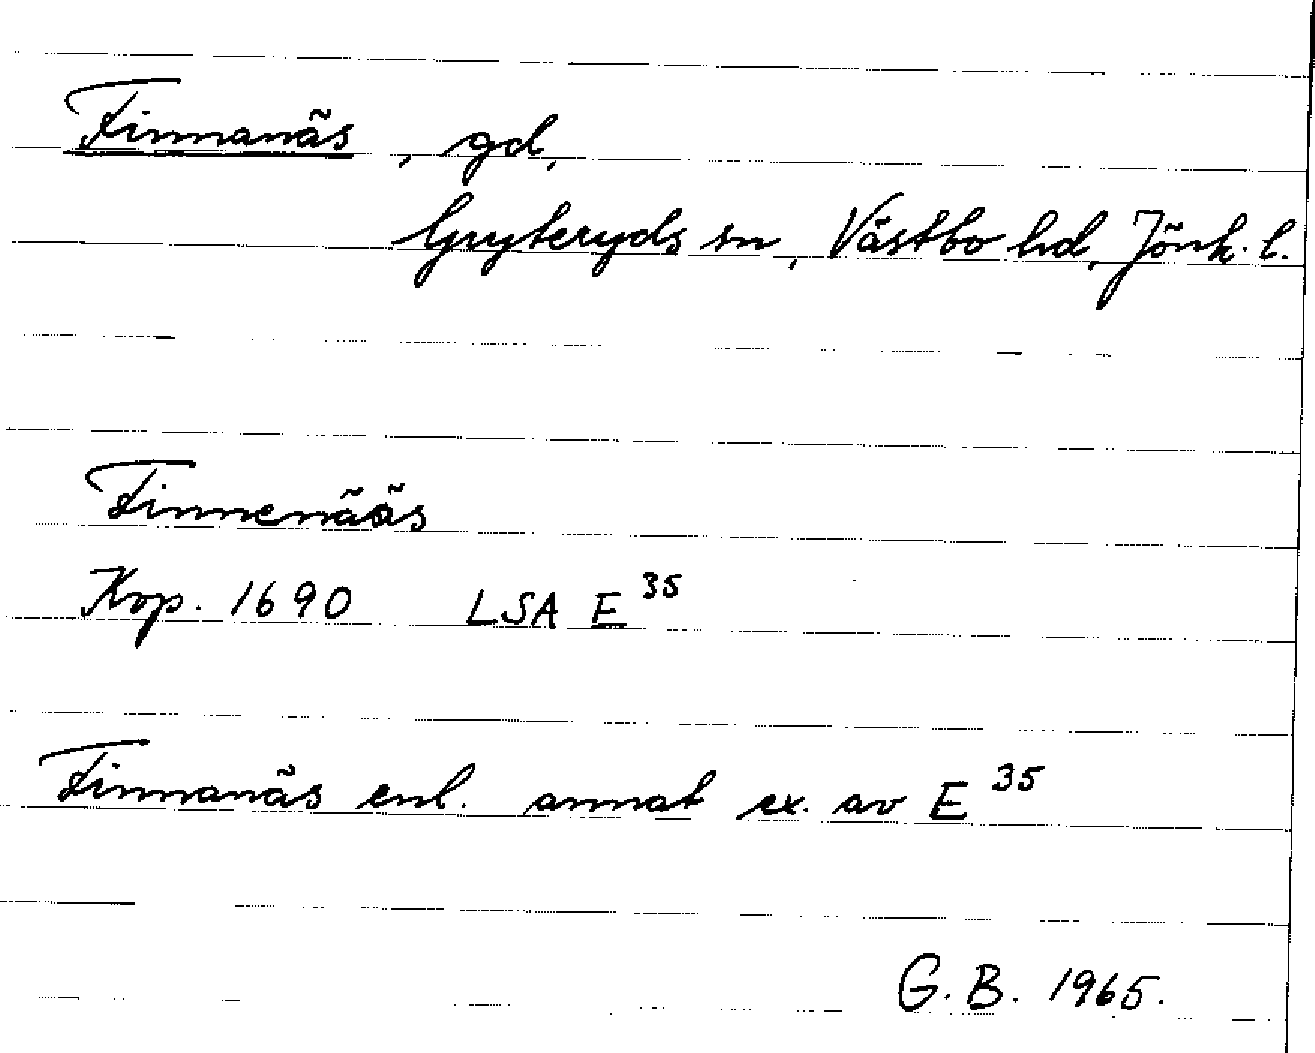 Finnanäs, gd,
Gryteryds sn, Västbo hd, Jönk. l.
Finnenääs
Kop. 1690 LSA E 35
Finnanäs enl. annat ex. av E 35
G. B. 1965.